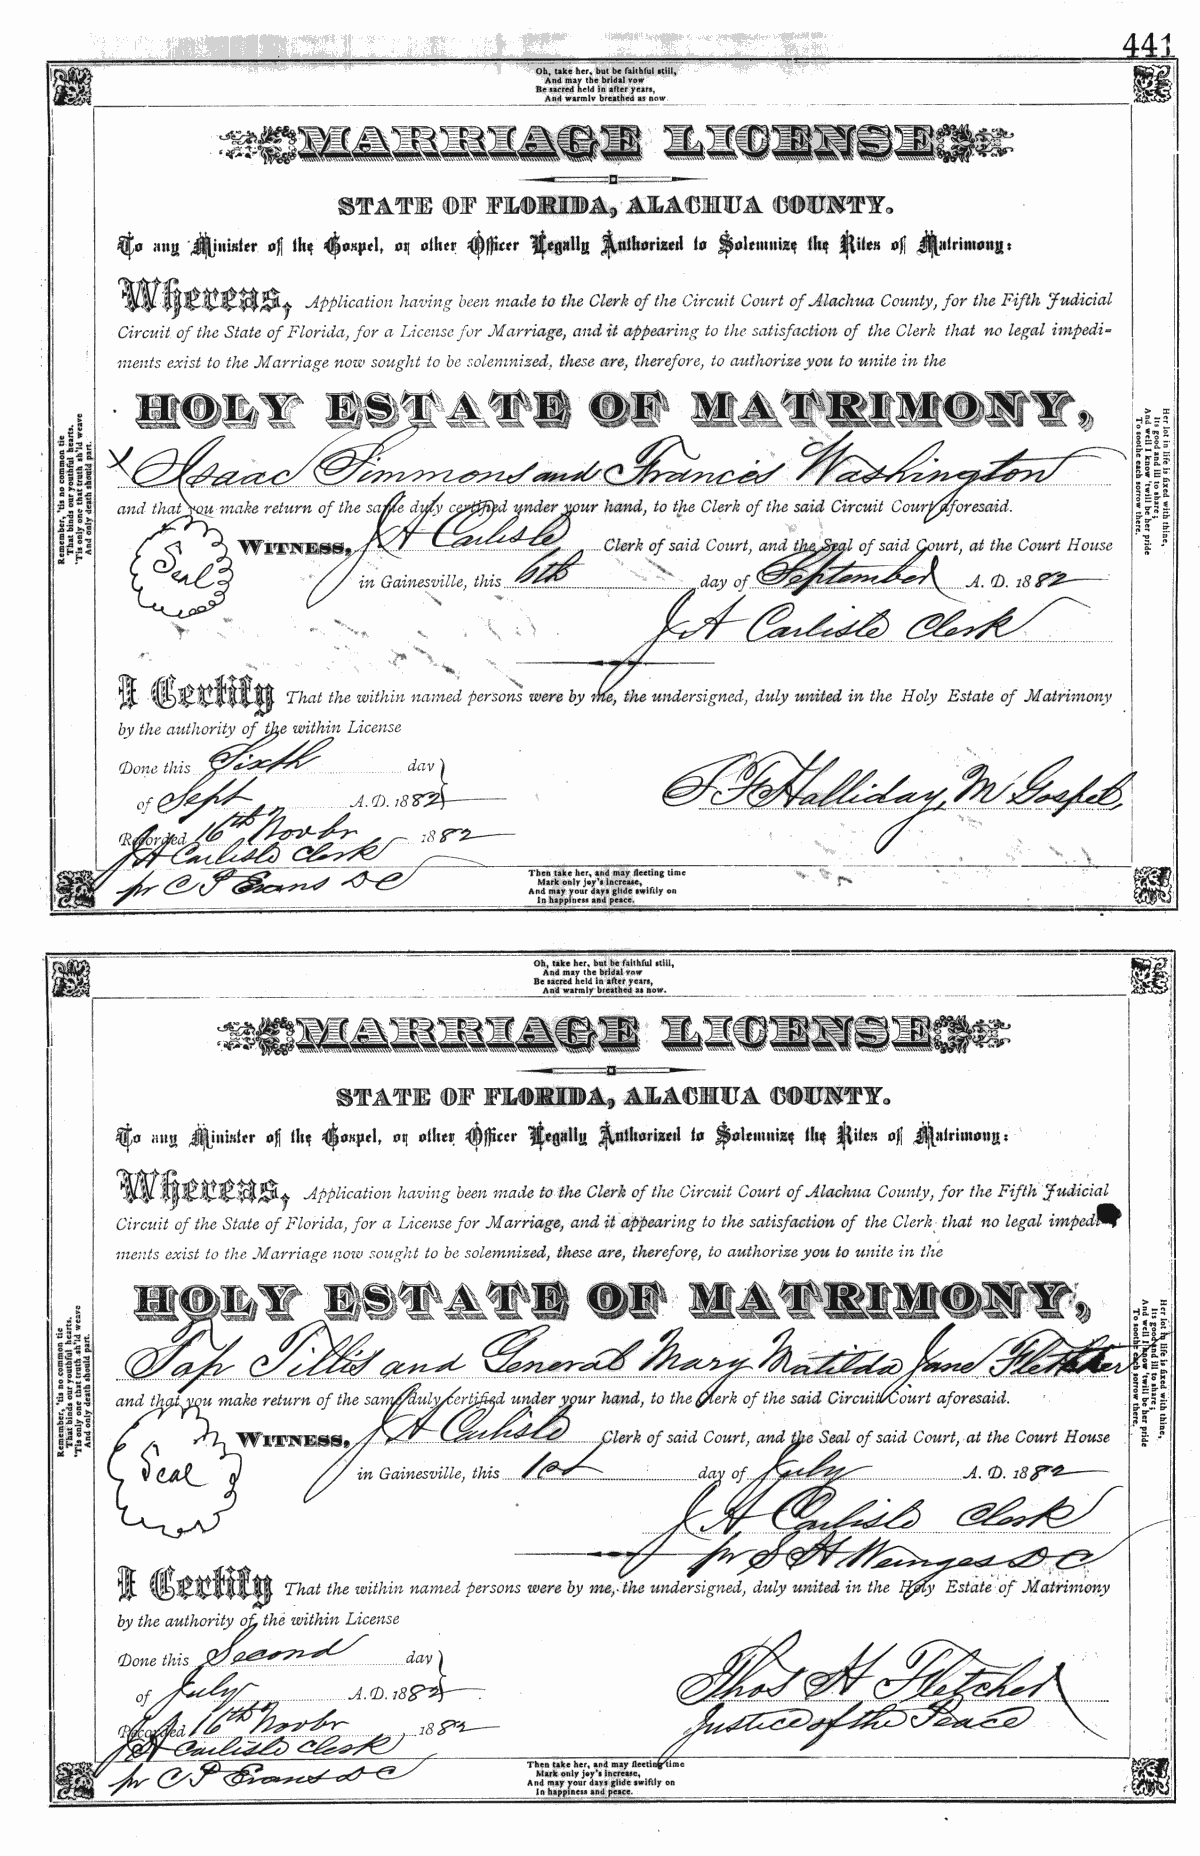 441
Oh, take her, but be faithful still,
And may the bridal vow
Be sacred held in after years,
And warmly breathed as now.
MARRIAGE LICENSE
STATE OF FLORIDA, ALACHUA COUNTY.
To any Minister of the Gospel, or other Officer Legally Authorized to Solemnize the Rites of Matrimony:
Whereas, Application having been made to the Clerk of the Circuit Court of Alachua County, for the Fifth Judicial
Circuit of the State of Florida, for a License for Marriage, and it appearing to the satisfaction of the Clerk that no legal impedi-
ments exist to the Marriage now sought to be solemnized, these are, therefore, to authorize you to unite in the
HOLY ESTATE OF MATRIMONY,
x Isaac Simmons and Francis Washington
and that you make return of the same duly certified under your hand, to the Clerk of the said Circuit Court aforesaid.
Seal
WITNESS, J A Carlisle Clerk of said Court, and the Seal of said Court, at the Court House
in Gainesville, this 6th day of September A. D. 1882
J A Carlisle Clerk
I Certify That the within named persons were by me, the undersigned, duly united in the Holy Estate of Matrimony
by the authority of the within License
Done this Sixth day
of Sept A. D. 1882
Halliday, M Gospel,
Recorded 16th Novbr 1882
J A Carlisle Clerk
pr C P Evans D C
Remember, 'tis no common tie
That binds our youthful hearts,
'Tis only one that truth sh'ld weave
And only death should part.
Her lot in life is fixed with thine,
Its good and ill to share;
And well I know 'twill be her pride
To soothe each sorrow there.
Then take her, and may fleeting time
Mark only joy's increase,
And may your days glide swiftly on
In happiness and peace.
Oh, take her, but be faithful still,
And may the bridal vow
Be sacred held in after years,
And warmly breathed as now.
MARRIAGE LICENSE
STATE OF FLORIDA, ALACHUA COUNTY.
To any Minister of the Gospel, or other Officer Legally Authorized to Solemnize the Rites of Matrimony:
Whereas, Application having been made to the Clerk of the Circuit Court of Alachua County, for the Fifth Judicial
Circuit of the State of Florida, for a License for Marriage, and it appearing to the satisfaction of the Clerk that no legal impedi-
ments exist to the Marriage now sought to be solemnized, these are, therefore, to authorize you to unite in the
HOLY ESTATE OF MATRIMONY,
Tap Tillis and General Mary Matilda Jane Fletcher
and that you make return of the same duly certified under your hand, to the Clerk of the said Circuit Court aforesaid.
Seal
WITNESS, J A Carlisle Clerk of said Court, and the Seal of said Court, at the Court House
in Gainesville, this 1st day of July A. D. 1882
J A Carlisle Clerk
pr S H Wienges D C
I Certify That the within named persons were by me, the undersigned, duly united in the Holy Estate of Matrimony
by the authority of the within License
Done this Second day
of July A. D. 1882
Thos H Fletcher
Justice of the Peace
Recorded 16th Novbr 1882
J A Carlisle Clerk
pr C P Evans D C
Remember, 'tis no common tie
That binds our youthful hearts,
'Tis only one that truth sh'ld weave
And only death should part.
Her lot in life is fixed with thine,
Its good and ill to share;
And well I know 'twill be her pride
To soothe each sorrow there.
Then take her, and may fleeting time
Mark only joy's increase,
And may your days glide swiftly on
In happiness and peace.